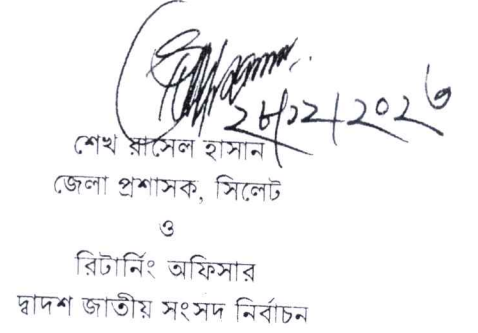 ২৮/১২/২০২৩
শেখ রাসেল হাসান
জেলা প্রশাসক, সিলেট
ও
রিটার্নিং অফিসার
দ্বাদশ জাতীয় সংসদ নির্বাচন